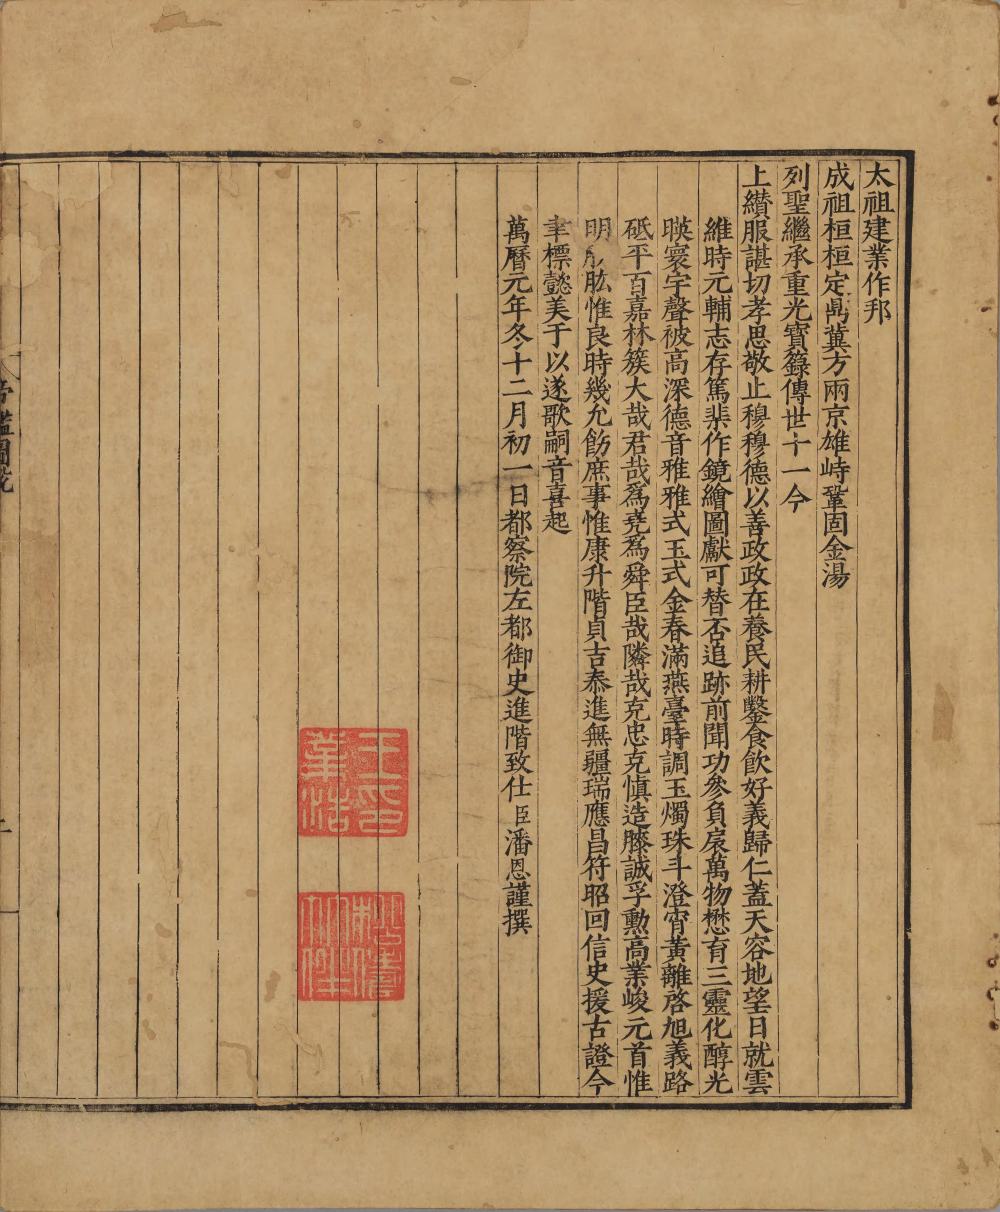 太祖建業作邦
成祖桓桓定鼎冀方兩京雄峙鞏固金湯
列聖繼承重光寶籙傳世十一今
上纘服諶切孝思敬止穆穆德以善政政在養民耕鑿食飲好義歸仁蓋天容地望日就雲
維時元輔志存篤棐作鏡繪圖獻可替否追跡前聞功參負扆萬物懋育三靈化醇光
暎寰宇聲被高深德音雅雅式玉式金春滿燕臺時調玉燭珠斗澄宵黃離啓旭義路
砥平百嘉林簇大哉君哉爲堯爲舜臣哉隣哉克忠克愼造膝誠孚勲高業峻元首惟
明股肱惟良時幾允飭庶事惟康升階貞吉泰進無疆瑞應昌符昭回信史援古證今
聿標懿美于以遂歌嗣音喜起
萬曆元年冬十二月初一日都察院左都御史進階致仕臣潘恩謹撰
帝鑑圖說
王印
業浩